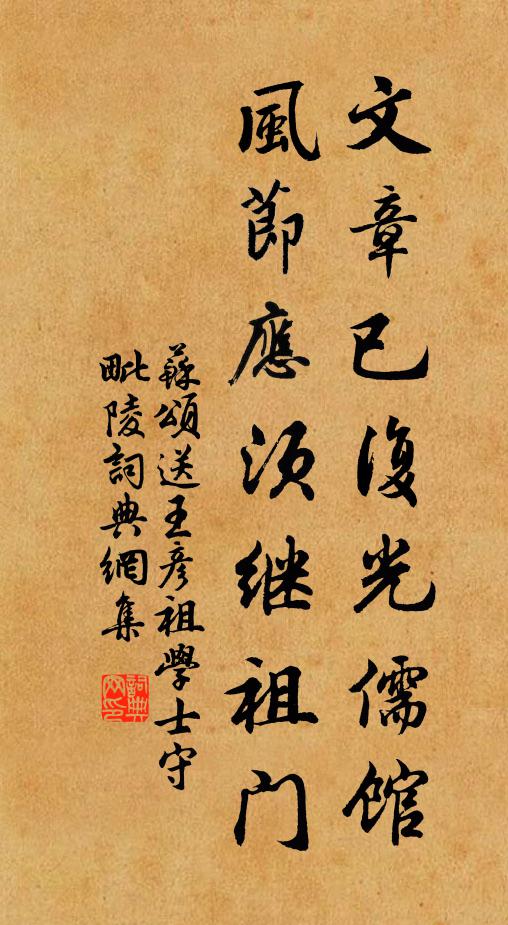 文章已復光儒館
風節應須继祖門
蘇頌送王彦祖學士守
毗陵詞典網集
詞典
网印